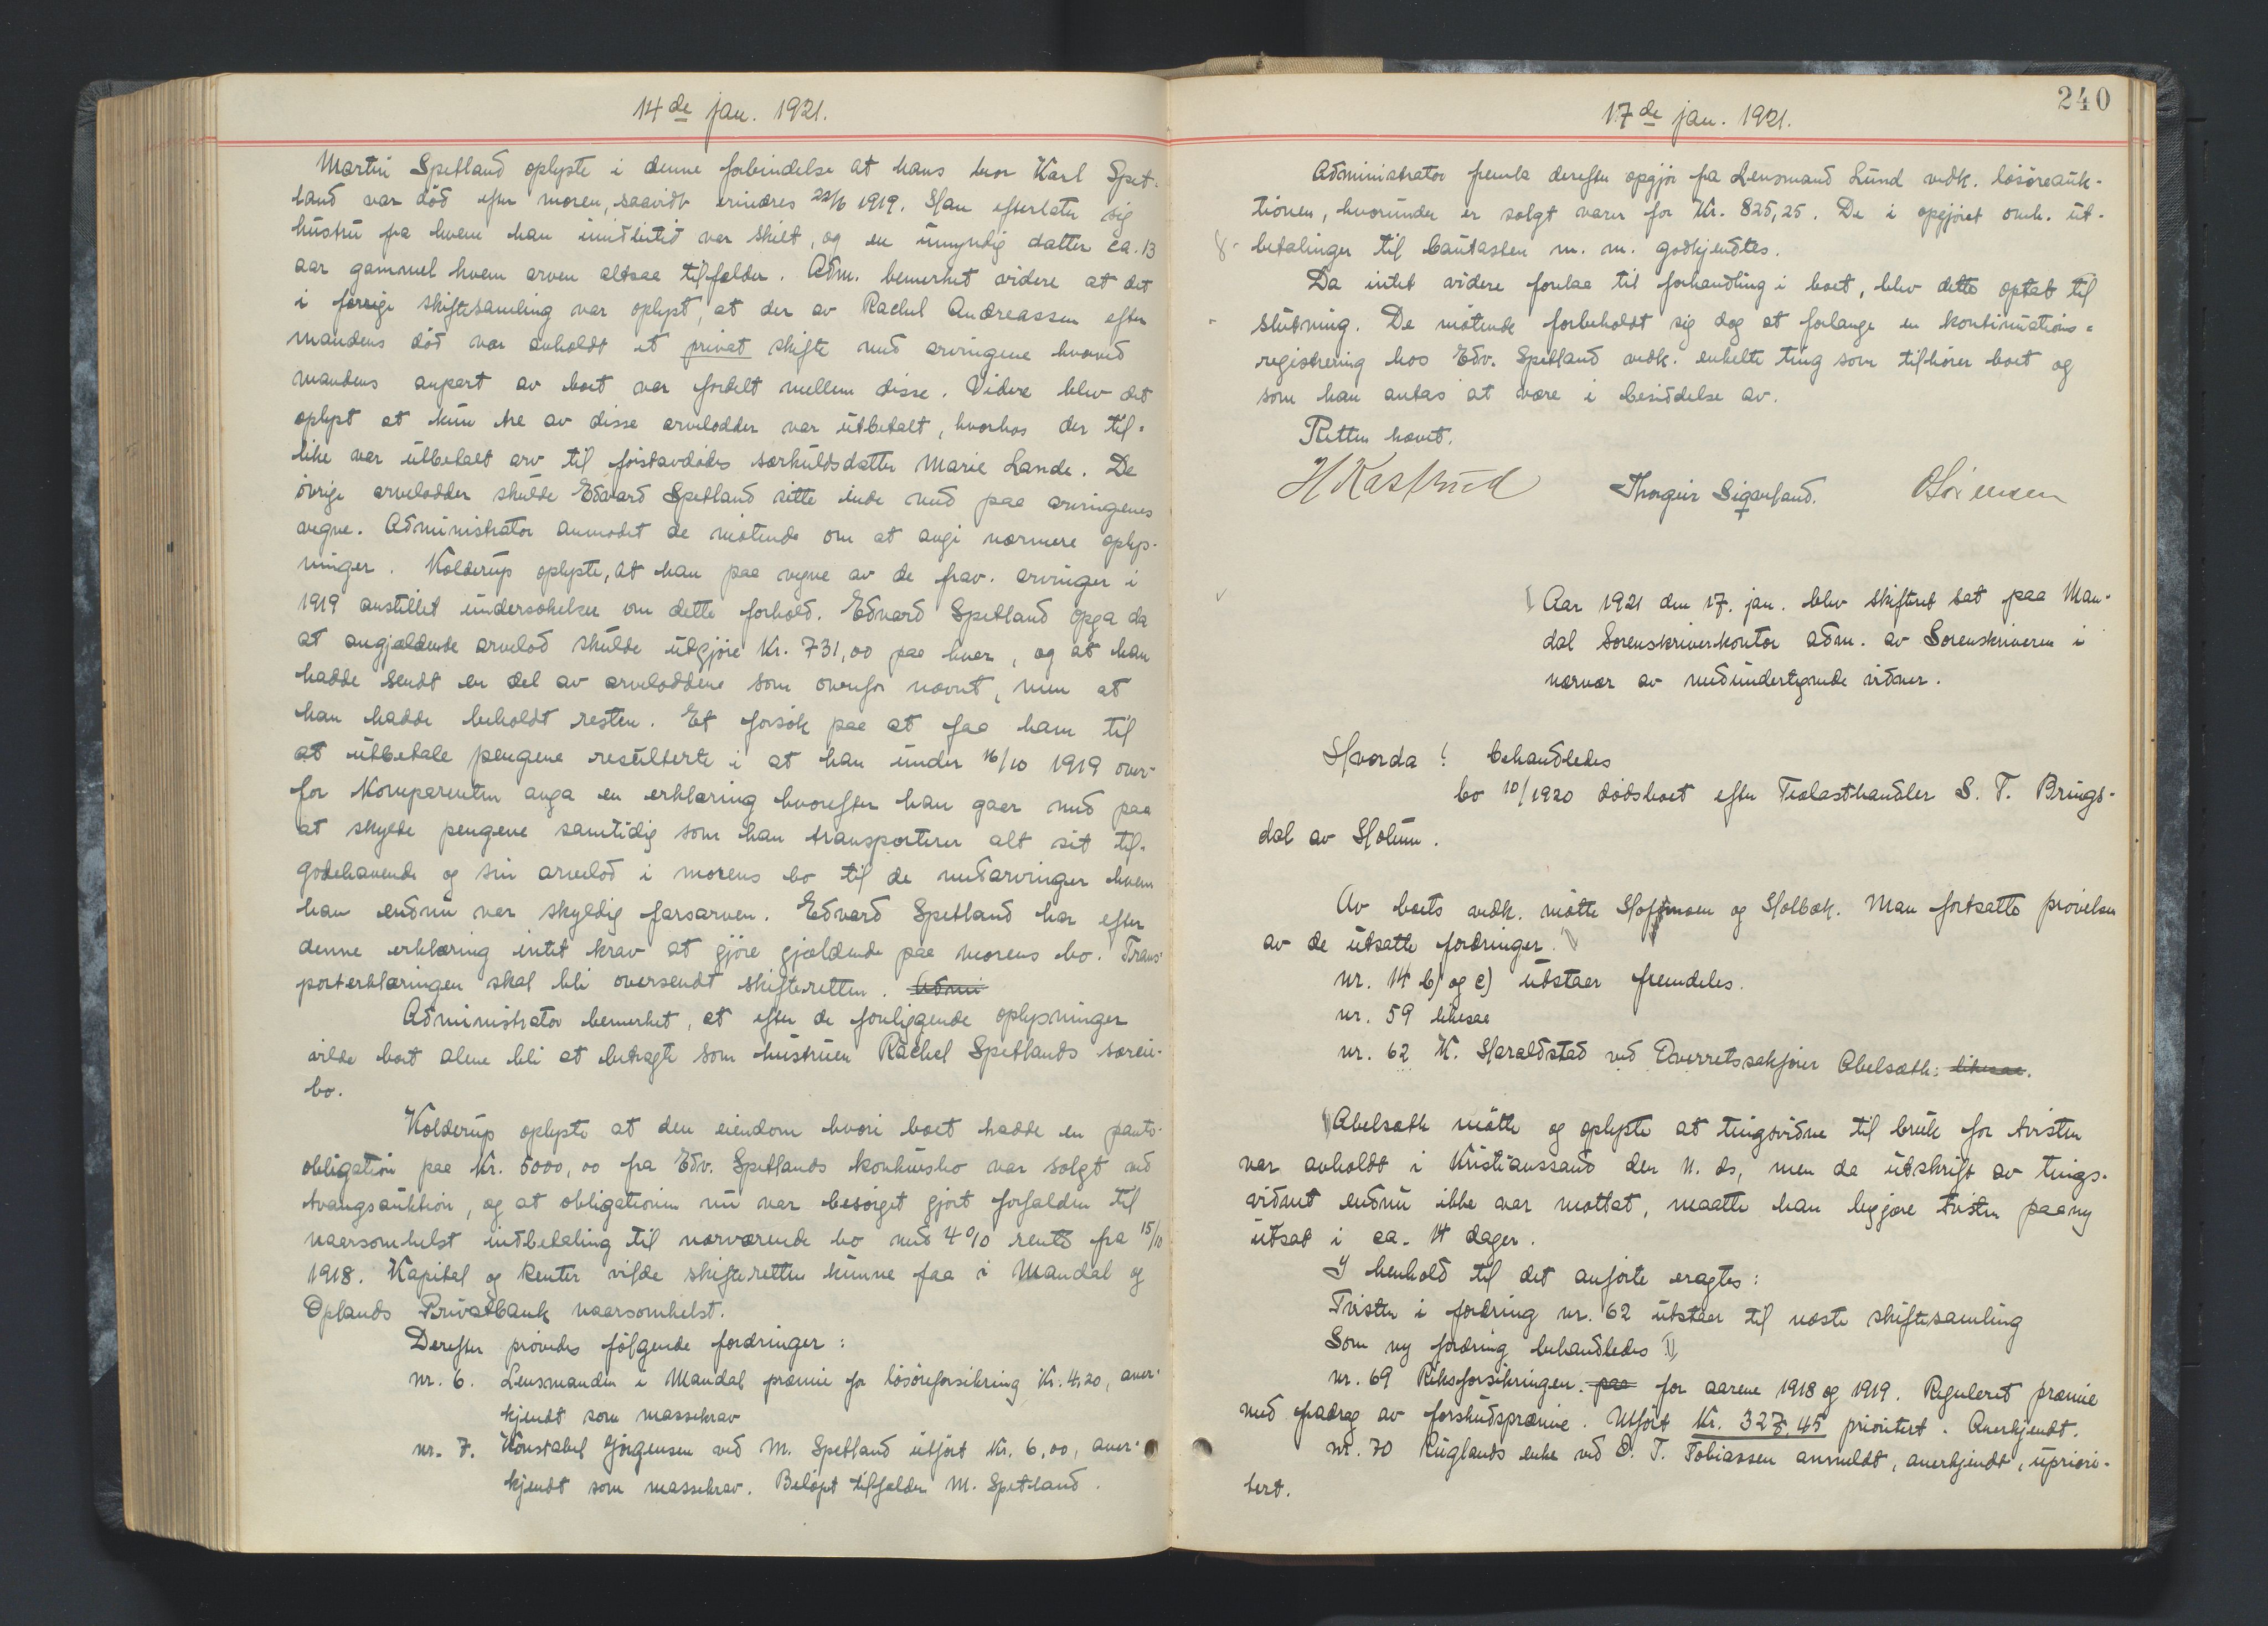 14de jan. 1921.
Martin Spetland oplyste i denne forbindelse at hans bror Karl Spet-
land var död efter moren, saavidt erindres 22/6 1919. Han efterlater sig
hustru fra hvem han imidlertid var skilt, og en umyndig datter ca. 13
aar gammel hvem arven altsaa tilfalder. Adm. bemerket videre at det
i forrige skiftesamling var oplyst, at der av Rachel Andreassen efter
mandens död var avholdt et privat skifte med arvingene hvorved
mandens anpart av boet var fordelt mellem disse. Videre blev det
oplyst at kun tre av disse arvelodder var utbetalt, hvorhos der til-
like var utbetalt arv til förstavdödes særkuldsdatter Marie Lande. De
övrige arvelodder skulde Edvard Spetland sitte inde med paa arvingenes
vegne. Administrator anmodet de mötende om at angi nærmere oplys-
ninger. Kolderup oplyste, at han paa vegne av de frav. arvinger i
1919 anstillet undersökelser om dette forhold. Edvard Spetland opga da
at angjældende arvelod skulde utgjöre Kr. 731,00 paa hver, og at han
hadde sendt en del av arveloddene som ovenfor nævnt, men at
han hadde beholdt resten. Et forsök paa at faa ham til
at utbetale pengene resulterte i at han under 16/10 1919 over-
for Komparenten avga en erklæring hvorefter han gaar med paa
at skylde pengene samtidig som han transporterer alt sit til-
godehavende og sin arvelod i morens bo til de medarvinger hvem
han endnu var skyldig farsarven. Edvard Spetland har efter
denne erklæring intet krav at gjöre gjældende paa morens bo. Trans-
porterklæringen skal bli oversendt skifteretten. Admi
Administrator bemerket, at efter de foreliggende oplysninger
vilde boet alene bli at betragte som hustruen Rachel Spetlands særeie-
bo.
Kolderup oplyste at den eiendom hvori boet hadde en pante-
obligation paa Kr. 5000,00 fra Edv. Spetlands konkursbo var solgt ved
tvangsauktion, og at obligationen nu var besörget gjort forfalden til
naarsomhelst indbetaling til nærværende bo med 4% rente fra 15/10
1918. Kapital og Renter vilde skifteretten kunne faa i Mandal og
Oplands Privatbank naarsomhelst.
Derefter prövedes fölgende fordringer:
nr. 6. Lensmanden i Mandal præmie for lösöreforsikring Kr. 4,20, aner-
kjendt som massekrav
nr. 7. Konstabel Jörgensen ved M. Spetland utfört Kr. 6,00, aner-
kjendt som massekrav. Belöpet tilfalder M. Spetland.
240
17de jan. 1921.
Administrator fremla derefter opgjör fra Lensmand Lund vedk. lösöreauk-
tionen, hvorunder er solgt varer for Kr. 825,25. De i opgjöret omh. ut-
betalinger til bautasten m. m. godkjendtes.
Da intet videre forelaa til forhandling i boet, blev dette optat til
slutning. De mötende forbeholdt sig dog at forlange en kontinuations-
registrering hos Edv. Spetland vedk. enkelte ting som tilhörer boet og
som han antas at være i besiddelse av.
Retten hævet.
H Kastrud Thorgeir Sigvesland. OSörensen
Aar 1921 den 17. jan. blev skifteret sat paa Man-
dal Sorenskriverkontor adm. av Sorenskriveren i
nærvær av medundertegnede vidner.
Hvorda: behandledes
bo 10/1920 dödsboet efter Trælasthandler S. T. Brings-
dal av Holum.
Av boets vedk. mötte Hoffmoen og Holbæk. Man fortsatte prövelsen
av de utsatte fordringer.
nr. 14 b) og c) utstaar fremdeles.
nr. 59 likesaa
nr. 62 K. Haraldstad ved Overretssakförer Abelsæth: likesaa.
Abelsæth mötte og oplyste at tingsvidne til bruk for tvisten
var avholdt i Kristianssand den 11. ds, men da utskrift av tings-
vidnet endnu ikke var mottat, maatte han begjære tvisten paany
utsat i ca. 14 dager.
I henhold til det anförte eragtes:
Tvisten i fordring nr. 62 utstaar til næste skiftesamling
Som ny fordring behandledes
nr. 69 Riksforsikringen. paa for aarene 1918 og 1919. Reguleret præmie
med fradrag av forskudspræmie. Utfört Kr. 327,45 prioritert. Anerkjendt.
nr. 70 Ruglands enke ved O. T. Tobiassen anmeldt, anerkjendt, upriori-
tert.